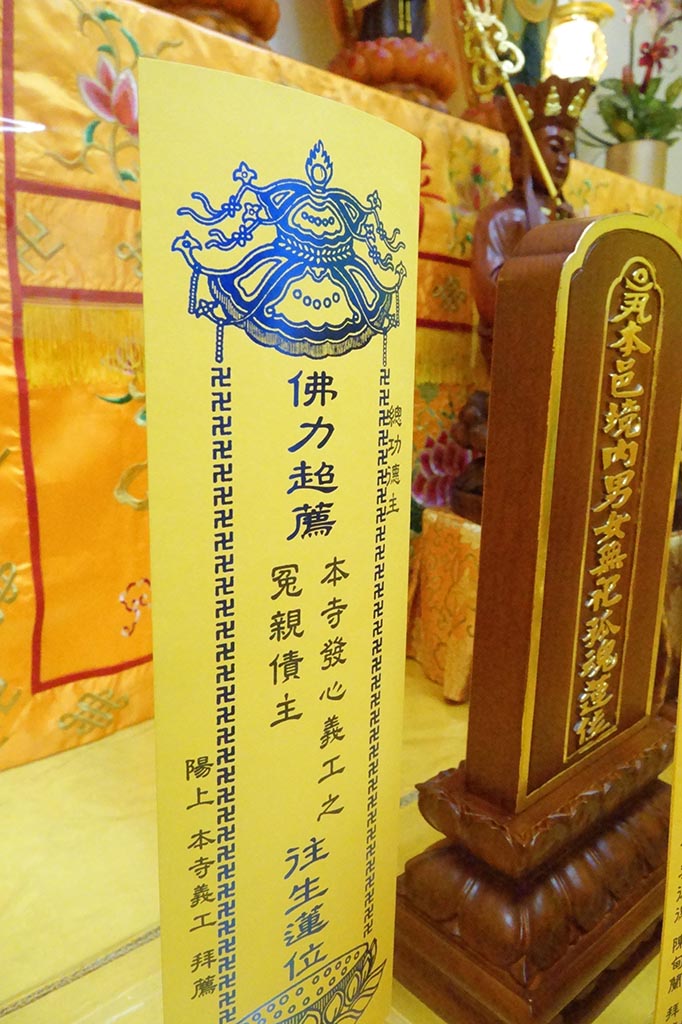 總功德主
佛力超薦
本寺發心義工之
冤親債主
往生蓮位
陽上 本寺義工 拜薦
本邑境內男女無祀孤魂蓮位
拜